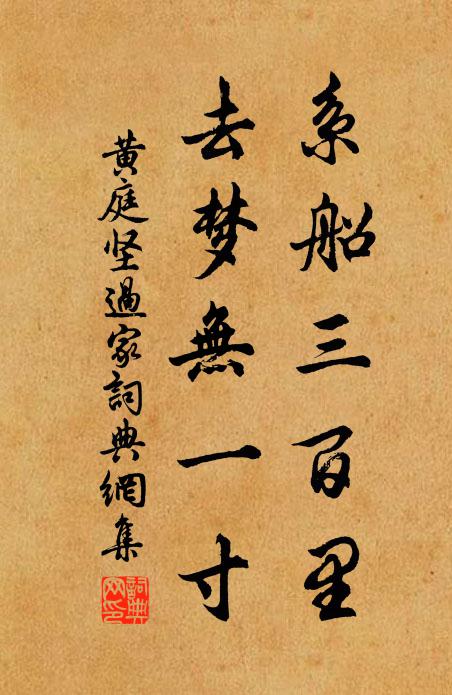 系船三百里
去梦無一寸
黄庭坚過家詞典網集
詞典
网印